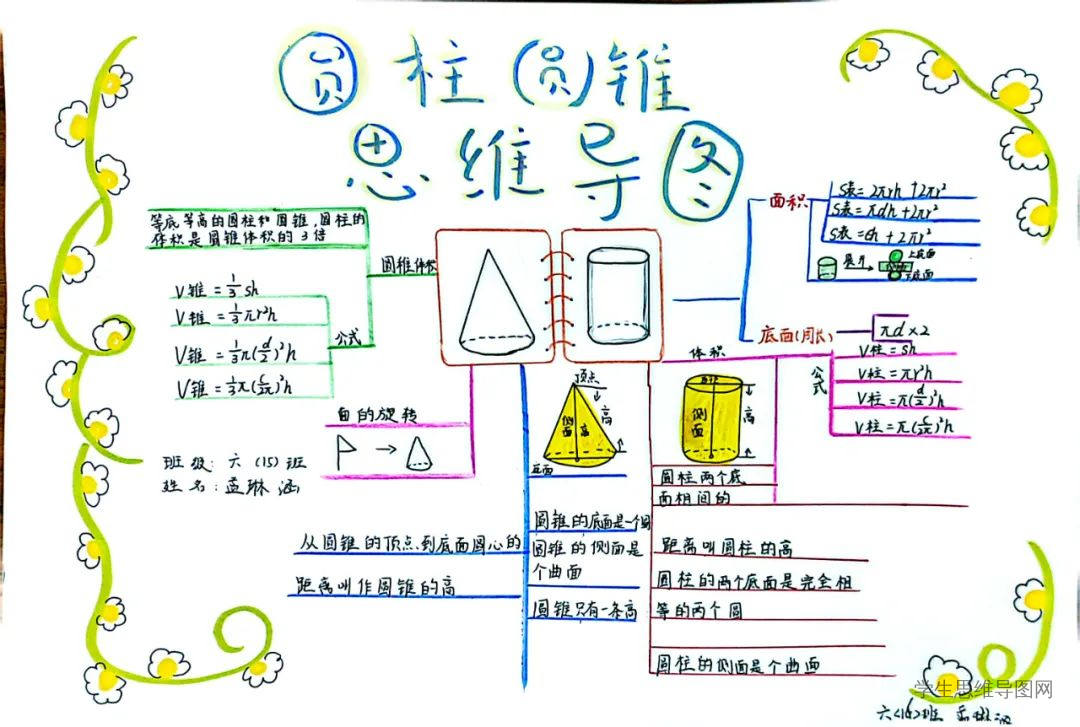 圆柱圆锥
思维导图
等底等高的圆柱和圆锥,圆柱的
体积是圆锥体积的3倍
圆锥体积
公式
V锥=1/3sh
V锥=1/3πr²h
V锥=1/3π(d/2)²h
V锥=1/3π(c/2π)²h
由的旋转
班级:六(15)班
姓名:孟琳涵
面积
S表=2πrh+2πr²
S表=πdh+2πr²
S表=Ch+2πr²
展开
上底面
下底面
底面(周长)
πd×2
体积
公式
V柱=sh
V柱=πr²h
V柱=π(d/2)²h
V柱=π(c/2π)²h
顶点
高
侧面
高
底面
侧面
高
圆柱两个底
面相间的
距离叫圆柱的高
圆柱的两个底面是完全相
等的两个圆
圆柱的侧面是个曲面
圆锥的底面是一个圆
圆锥的侧面是
个曲面
圆锥只有一条高
从圆锥的顶点到底面圆心的
距离叫作圆锥的高
学生思维导图网
六(15)班 孟琳涵